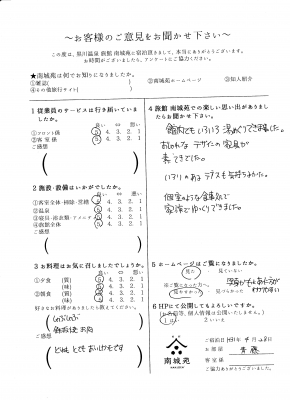 ～お客様のご意見をお聞かせ下さい～
この度は、黒川温泉 旅館 南城苑に宿泊頂きまして、本当にありがとうございます。
お時間がございましたら、アンケートにご協力ください。
★南城苑は何でお知りになりましたか。
①雑誌(
②南城苑ホームページ
③知人紹介
④その他旅行サイト(
1 従業員のサービスは行き届いていましたか。
良 ⇔ 悪い
①フロント係 5. 4. 3. 2. 1
②客室係 5. 4. 3. 2. 1
ご感想
2 施設・設備はいかがでしたか。
良 ⇔ 悪い
①客室全体・掃除・営繕 5. 4. 3. 2. 1
②温泉 5. 4. 3. 2. 1
③寝具・浴衣類・アメニティ 5. 4. 3. 2. 1
④旅館全体 5. 4. 3. 2. 1
ご感想
3 お料理はお気に召しましたでしょうか。
良 ⇔ 悪い
①夕食 (質) 5. 4. 3. 2. 1
(味) 5. 4. 3. 2. 1
②朝食 (質) 5. 4. 3. 2. 1
(味) 5. 4. 3. 2. 1
好きなお料理がありましたら教えて下さい。
しゃぶしゃぶ
ご感想
どれも とても おいしかったです
4 旅館 南城苑での楽しい思い出がありましたらお聞かせ下さい。
館内でも いろいろ 湯めぐりでき
おしゃれな デザインの 家具が
素てきでした。
いろりのある テラスも 気持ちよかった。
個室のような 食事処で
家族で ゆっくりできました。
5 ホームページはご覧になりましたか。
見た ・ 見ていない
※ご覧になった方へ
見やすかった ・ 見づらかった
6 HPにて公開してもよろしいですか。
(お名前等、個人情報は公開いたしません。)
1 はい 2.いいえ
南城苑
ご宿泊日 H31 年 4 月 28日
お部屋
客室係
ご協力ありがとうございました。